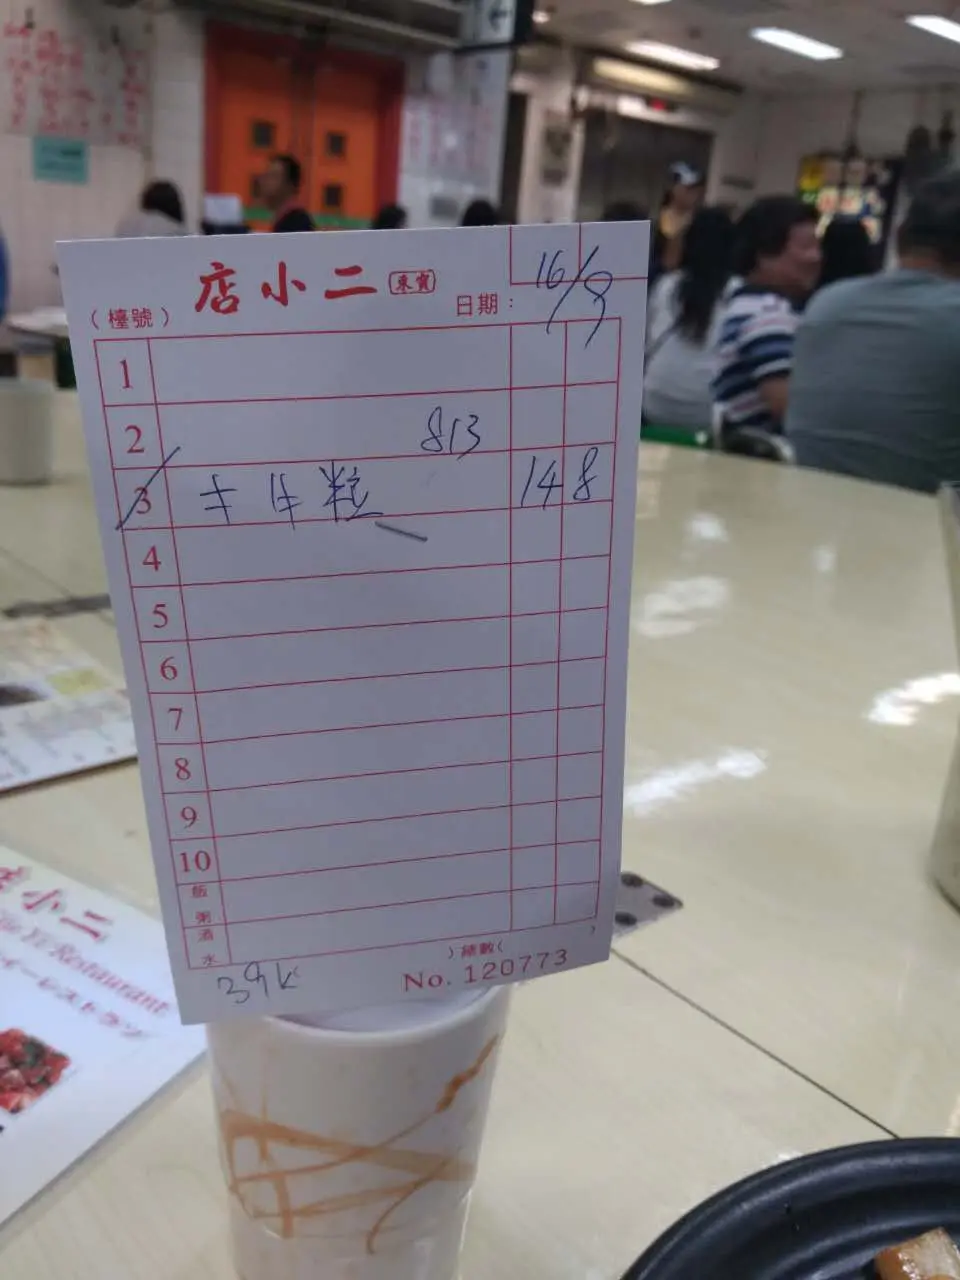 店小二 東寶
日期：16/9
（檯號）
1
2 813
3 牛粒 148
4
5
6
7
8
9
10
飯粥
酒水
）總數（ ）
39K No. 120773
小二
Restaurant
レストラン